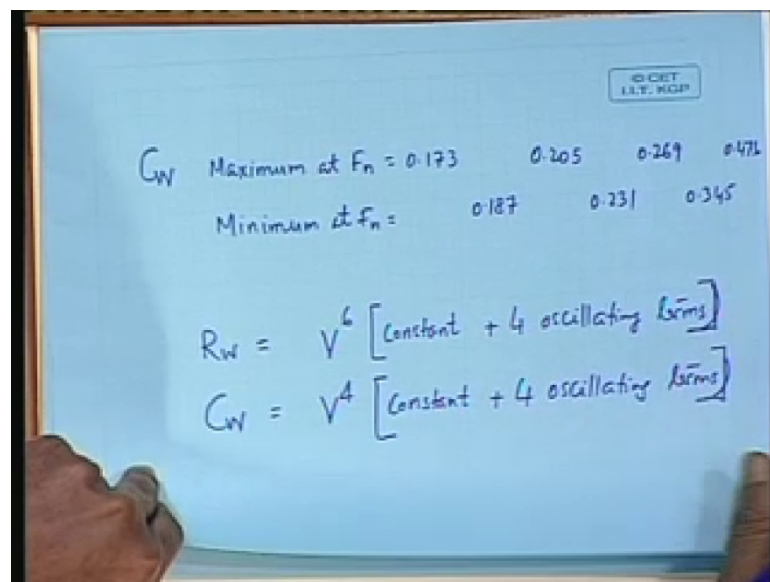 © CET
I.I.T. KGP
Cw Maximum at Fn = 0.173 0.205 0.269 0.476
Minimum at Fn = 0.187 0.231 0.345
Rw = V⁶ [Constant + 4 oscillating terms]
Cw = V⁴ [Constant + 4 oscillating terms]